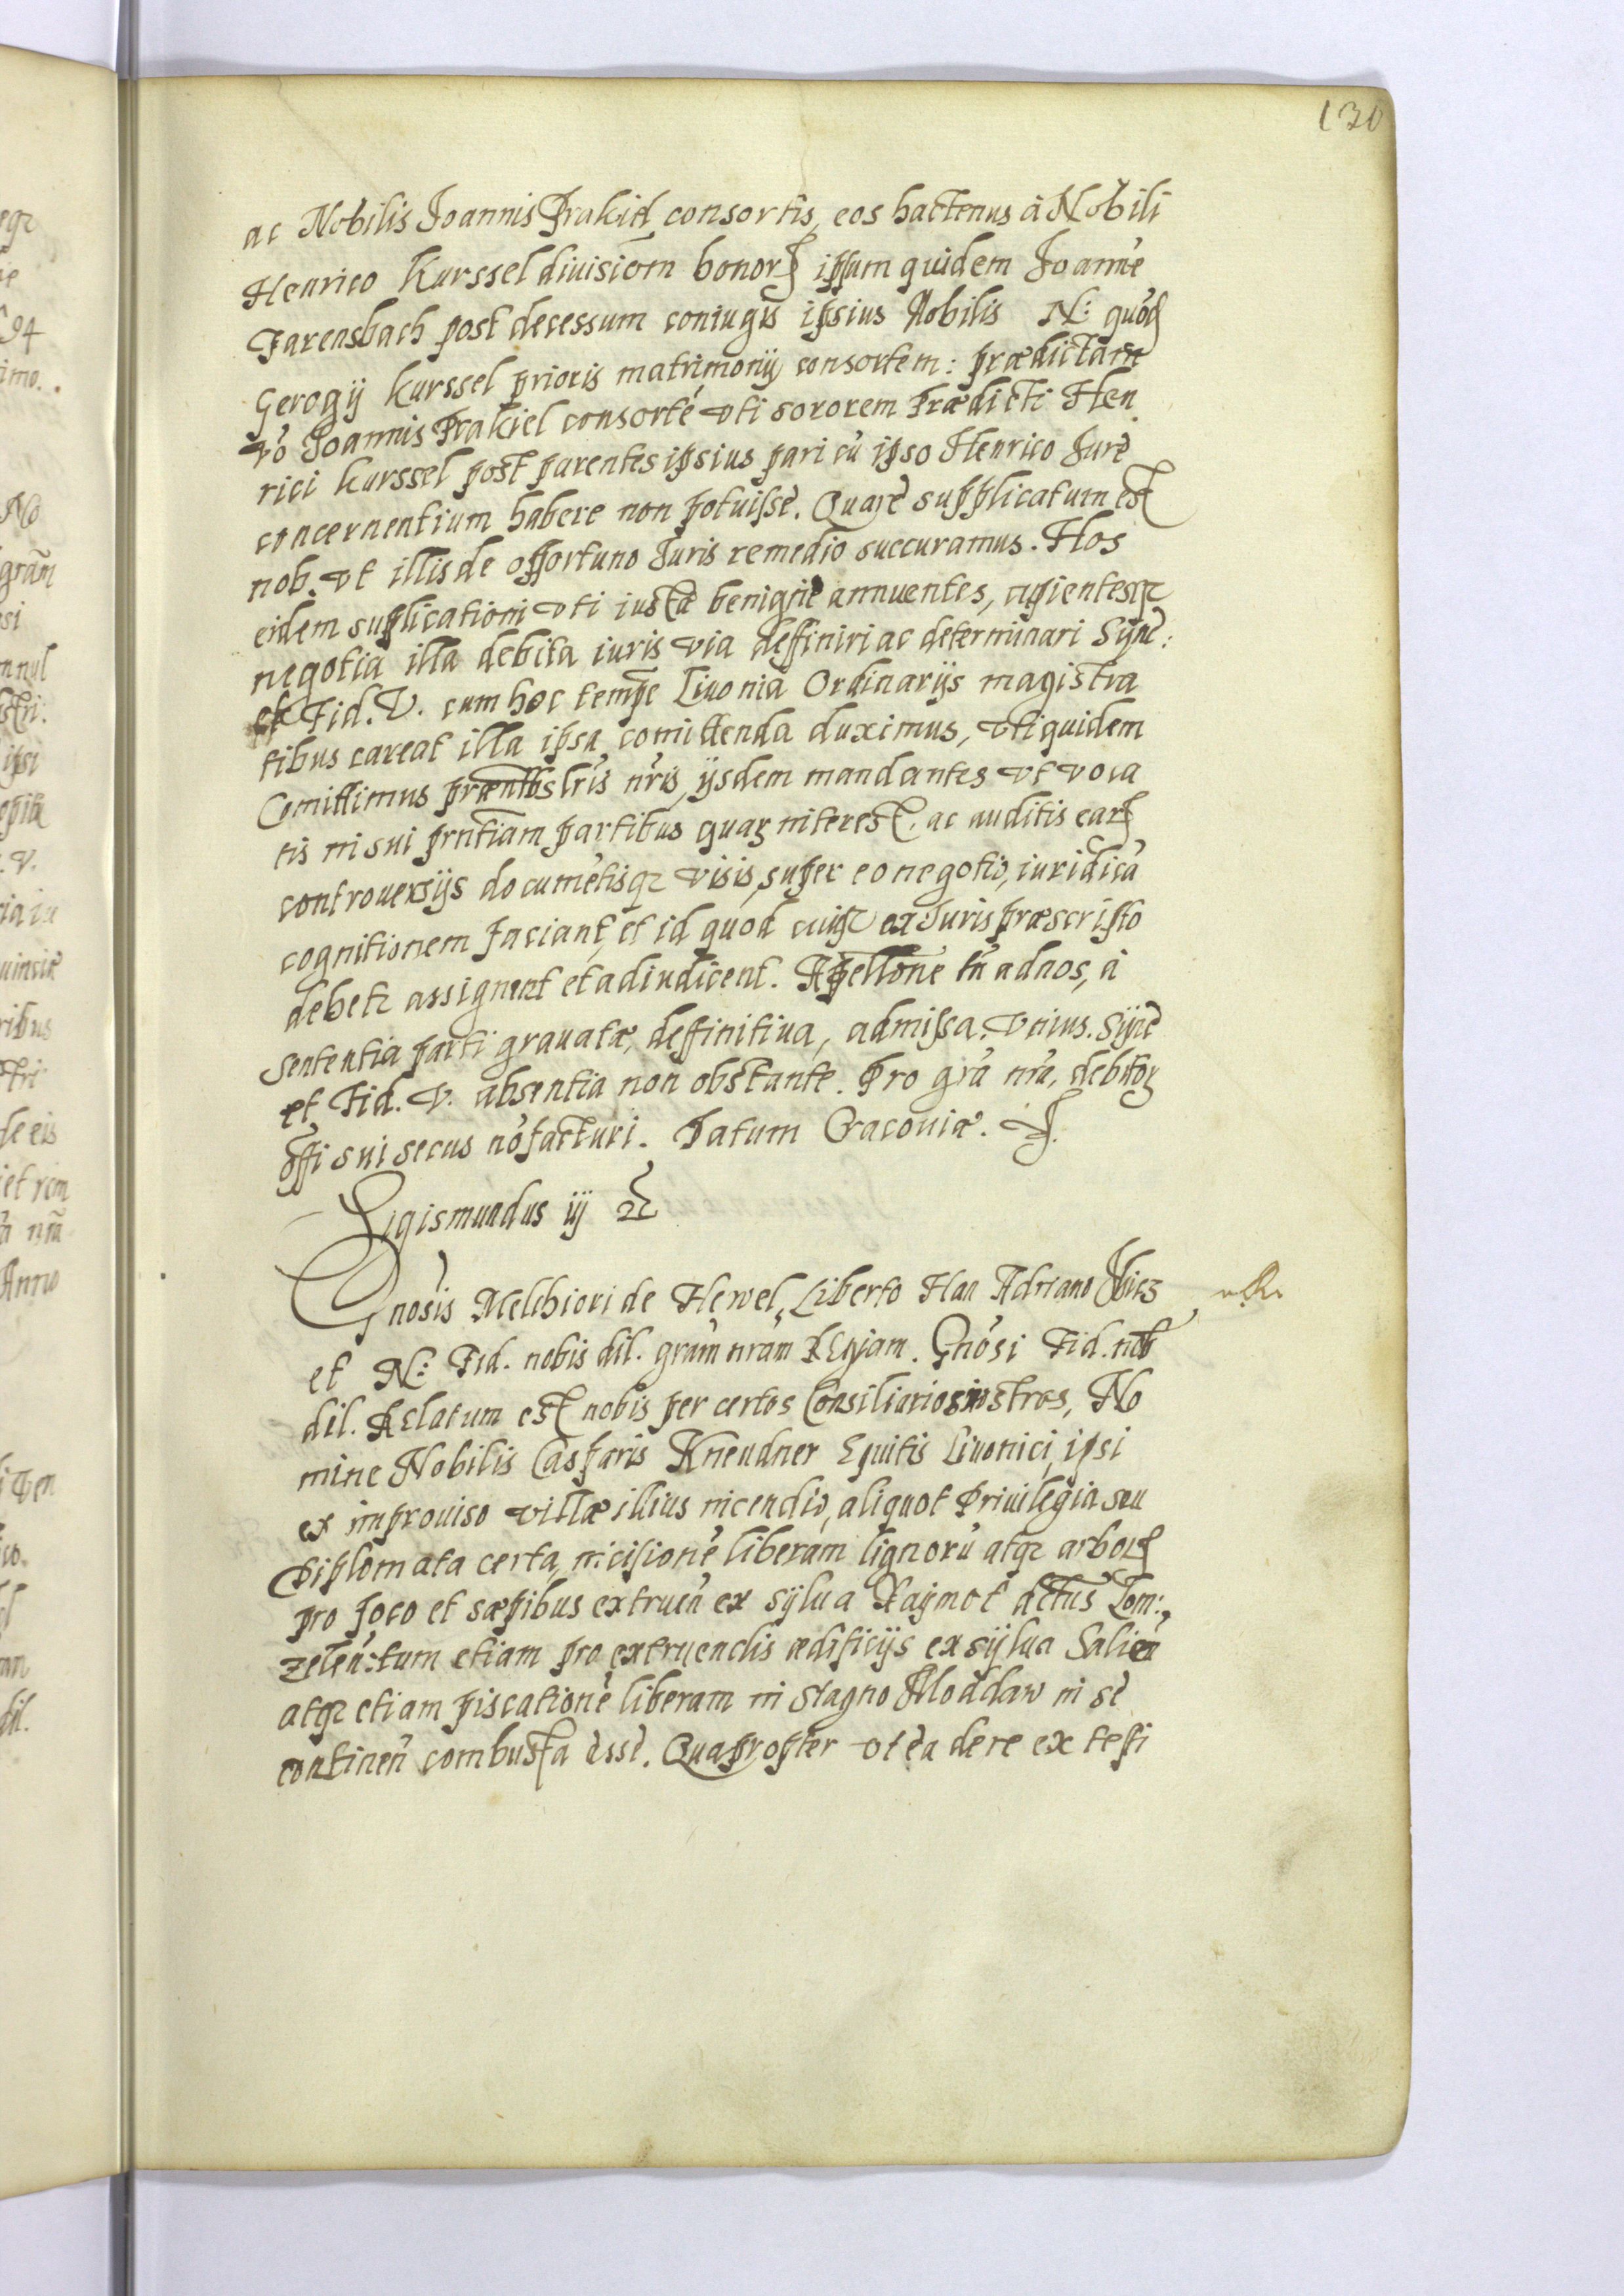 130
ac Nobilis Joannis Prakiel consortis, eos hactenus à Nobili
Henrico Kurssel diuisiōm bonor ipsum quidem Joannē
Farensbach post decessum coniugis ipsius Nobilis N: quōd
Gerogij Kurssel prioris matrimonij consortem: prædictam
vō Joannis Prakiel consortē vti sororem Prædicti Hen
rici Kurssel post parentes ipsius pari cū ipso Henrico Jure
concernentium habere non potuisse. Quare supplicatum est
nob. vt illis de opportuno Juris remedio succuramus. Nos
eidem suplicationi vti iusta benigne annuentes, cupientesq
negotia illa debita iuris via deffiniri ac determinari Sync:
et Fid. V. cum hoc tempe Liuonia Ordinarijs magistra
tibus careat illa ipsa comittenda duximus, vti quidem
Comittimus præntbs lrīs nrīs, ijsdem mandantes vt voca
tis in sui prntiam partibus quar interest. ac auditis ear
controuersijs documētisq visis, super eo negotio, iuridicā
cognitionem faciant, et id quod cuiq ex Juris præscripto
debetr assignent et adiudicent. Apellōne tn ad nos, à
sententia parti grauatæ, deffinitiua, admissa. Vnius. Sync
et Fid. V. absentia non obstante. Pro grā nrā, debitoq
offi sui secus nō facturi. Datum Cracouiæ.
Sigismundus iij
Gnosis Melchiori de Hewel, Liberto Han Adriano
et N: Fid. nobis dil. grām nrām Regiam. Gnōsi Fid. nob
dil. Relatum est nobis per certos Consiliarios nostros, No
mine Nobilis Casparis Kneudner Equitis Liuonici, ipsi
ex improuiso villæ illius incendio, aliquot Priuilegia seu
Diplomata certa, incisionē liberam lignorū atq arbor
pro foco et sæpibus extruēn ex sylua Raymot actus Lom:
zelēn: tum etiam pro extruendis ædificijs ex sylua Saliēn
atq etiam piscationē liberam in stagno Moddaw in se
continēn combusta esse. Quapropter vt ea de re ex testi